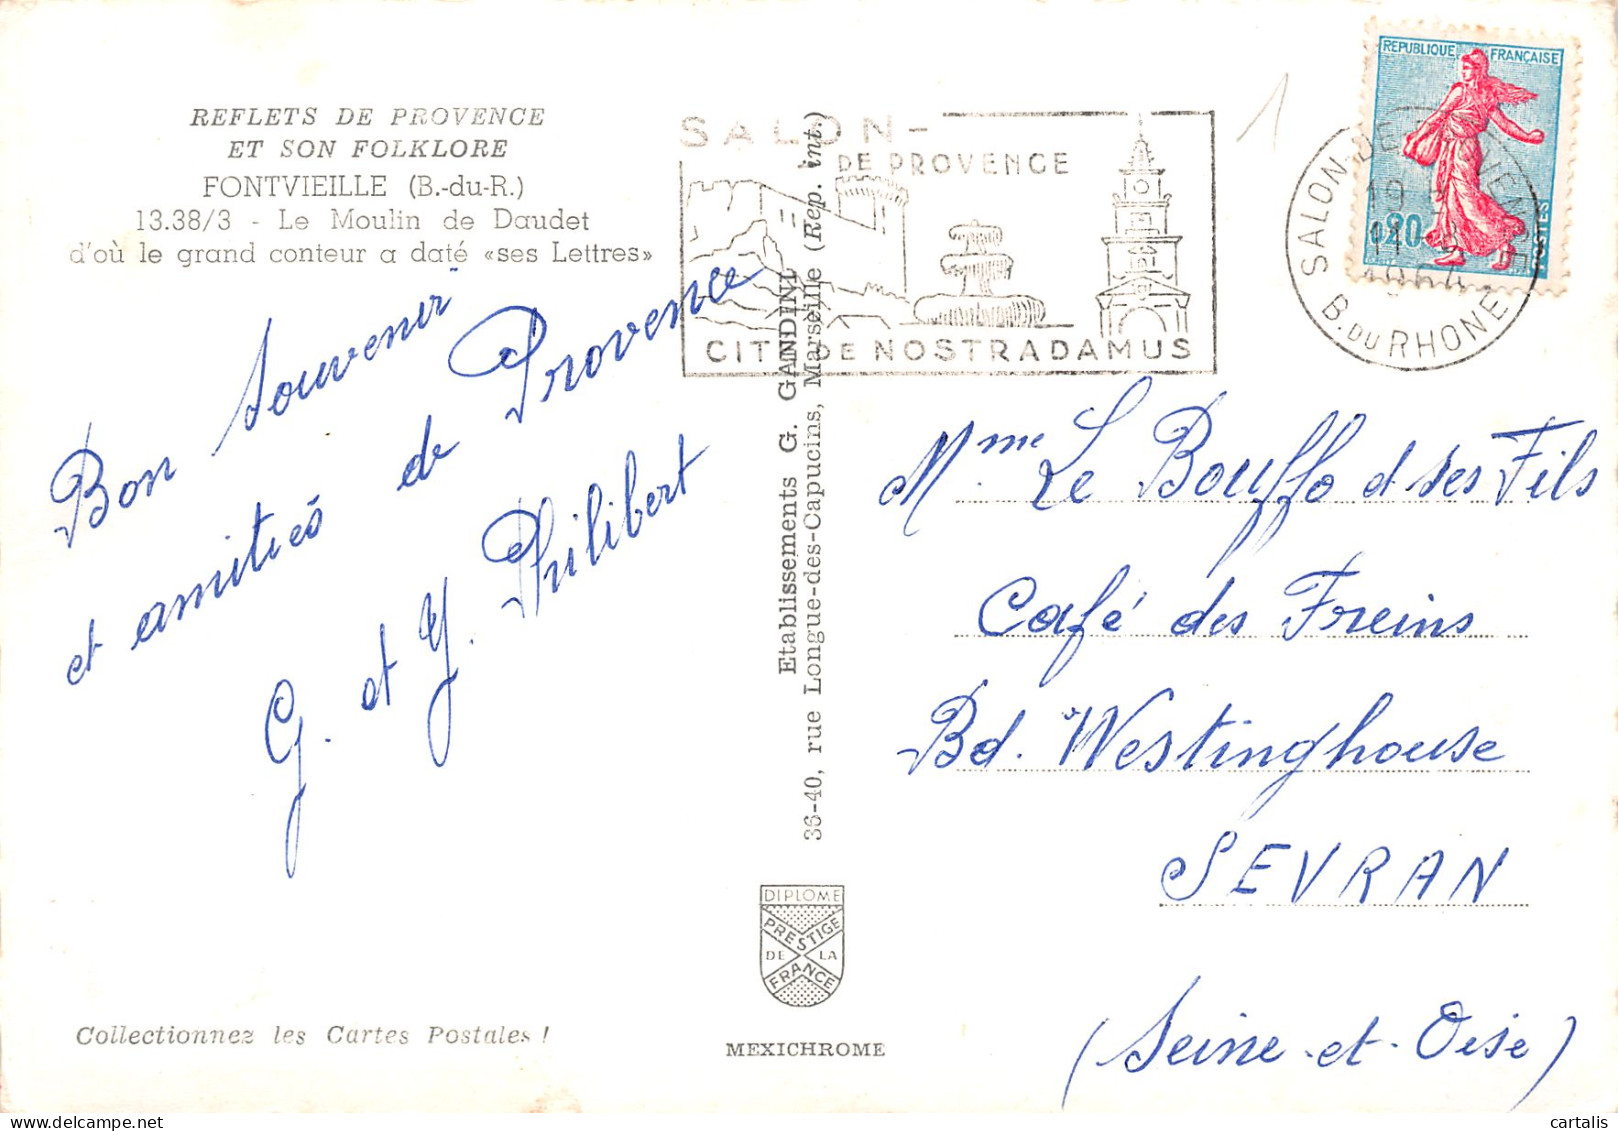 REFLETS DE PROVENCE
ET SON FOLKLORE
FONTVIEILLE (B.-du-R.)
13.38/3 - Le Moulin de Daudet
d'où le grand conteur a daté «ses Lettres»
Bon Souvenir
et amitiés de Provence
G. et Y. Philibert
Collectionnez les Cartes Postales !
Etablissements G. GANDINI
36-40, rue Longue-des-Capucins, Marseille (Rep. int.)
DIPLOME
PRESTIGE
DE LA
FRANCE
MEXICHROME
SALON-
DE PROVENCE
CITÉ DE NOSTRADAMUS
REPUBLIQUE FRANÇAISE
0,20
POSTES
SALON-DE-PROVENCE
19
11
1964
B. DU RHONE
1
Mme Le Bouffo et ses Fils
Café des Freins
Bd. Westinghouse
SEVRAN
(Seine-et-Oise)
cartalis
www.delcampe.net